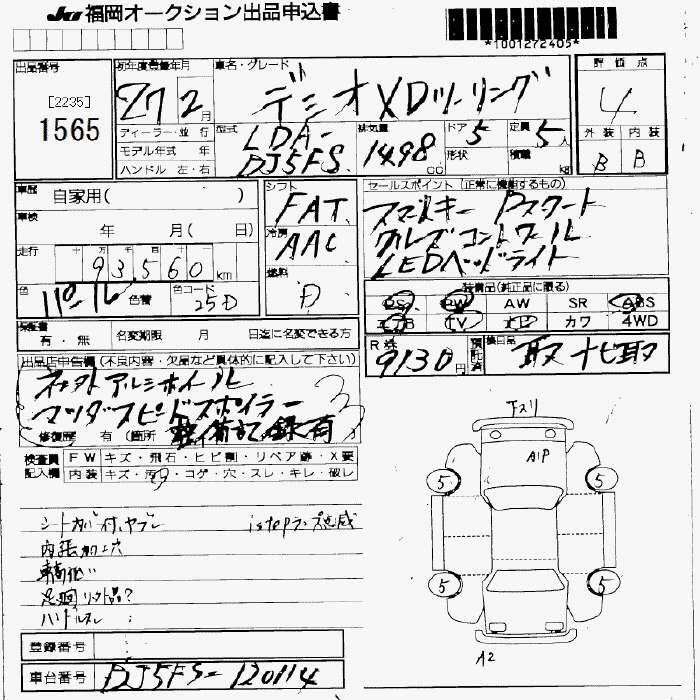 JU 福岡オークション出品申込書
*1001272405*
出品番号
[2235]
1565
初年度登録年月
27 2月
車名・グレード
デミオ XDツーリング
評価点
4
外装 内装
B B
ディーラー・並行
モデル年式 年
ハンドル 左・右
型式
LDA-
DJ5FS
排気量
1498 cc
ドア 5
形状
定員 5人
積載 kg
車歴 自家用( )
車検 年 月( 日)
走行 十万千百十
93,560 km
色 パール 色替
色コード 25D
シフト
FAT
冷房
AAC
燃料
D
セールスポイント (正常に機能するもの)
スマートキー Pスタート
クルーズコントロール
LEDヘッドライト
装備品(純正品に限る)
PS PW AW SR ABS
エアB TV ナビ カワ 4WD
保証書
有・無 名変期限 月 日迄に名変できる方
R券
9130円
預託済
後日品
取 ナビ取
出品店申告欄 (不良内容・欠品など具体的に記入して下さい)
社外アルミホイール
マツダスピードスポイラー
修復歴 有 (箇所 整備記録有
検査員記入欄
FW キズ・飛石・ヒビ割・リペア跡・X要
内装 キズ・汚・コゲ・穴・スレ・キレ・破レ
シートカバー付、ヤブレ istopランプ点滅
内張加工穴
車高低い
足廻リ外品?
ハンドルスレ
下スリ
A1P
5 5
5 5
A2
登録番号
車台番号 DJ5FS-120114